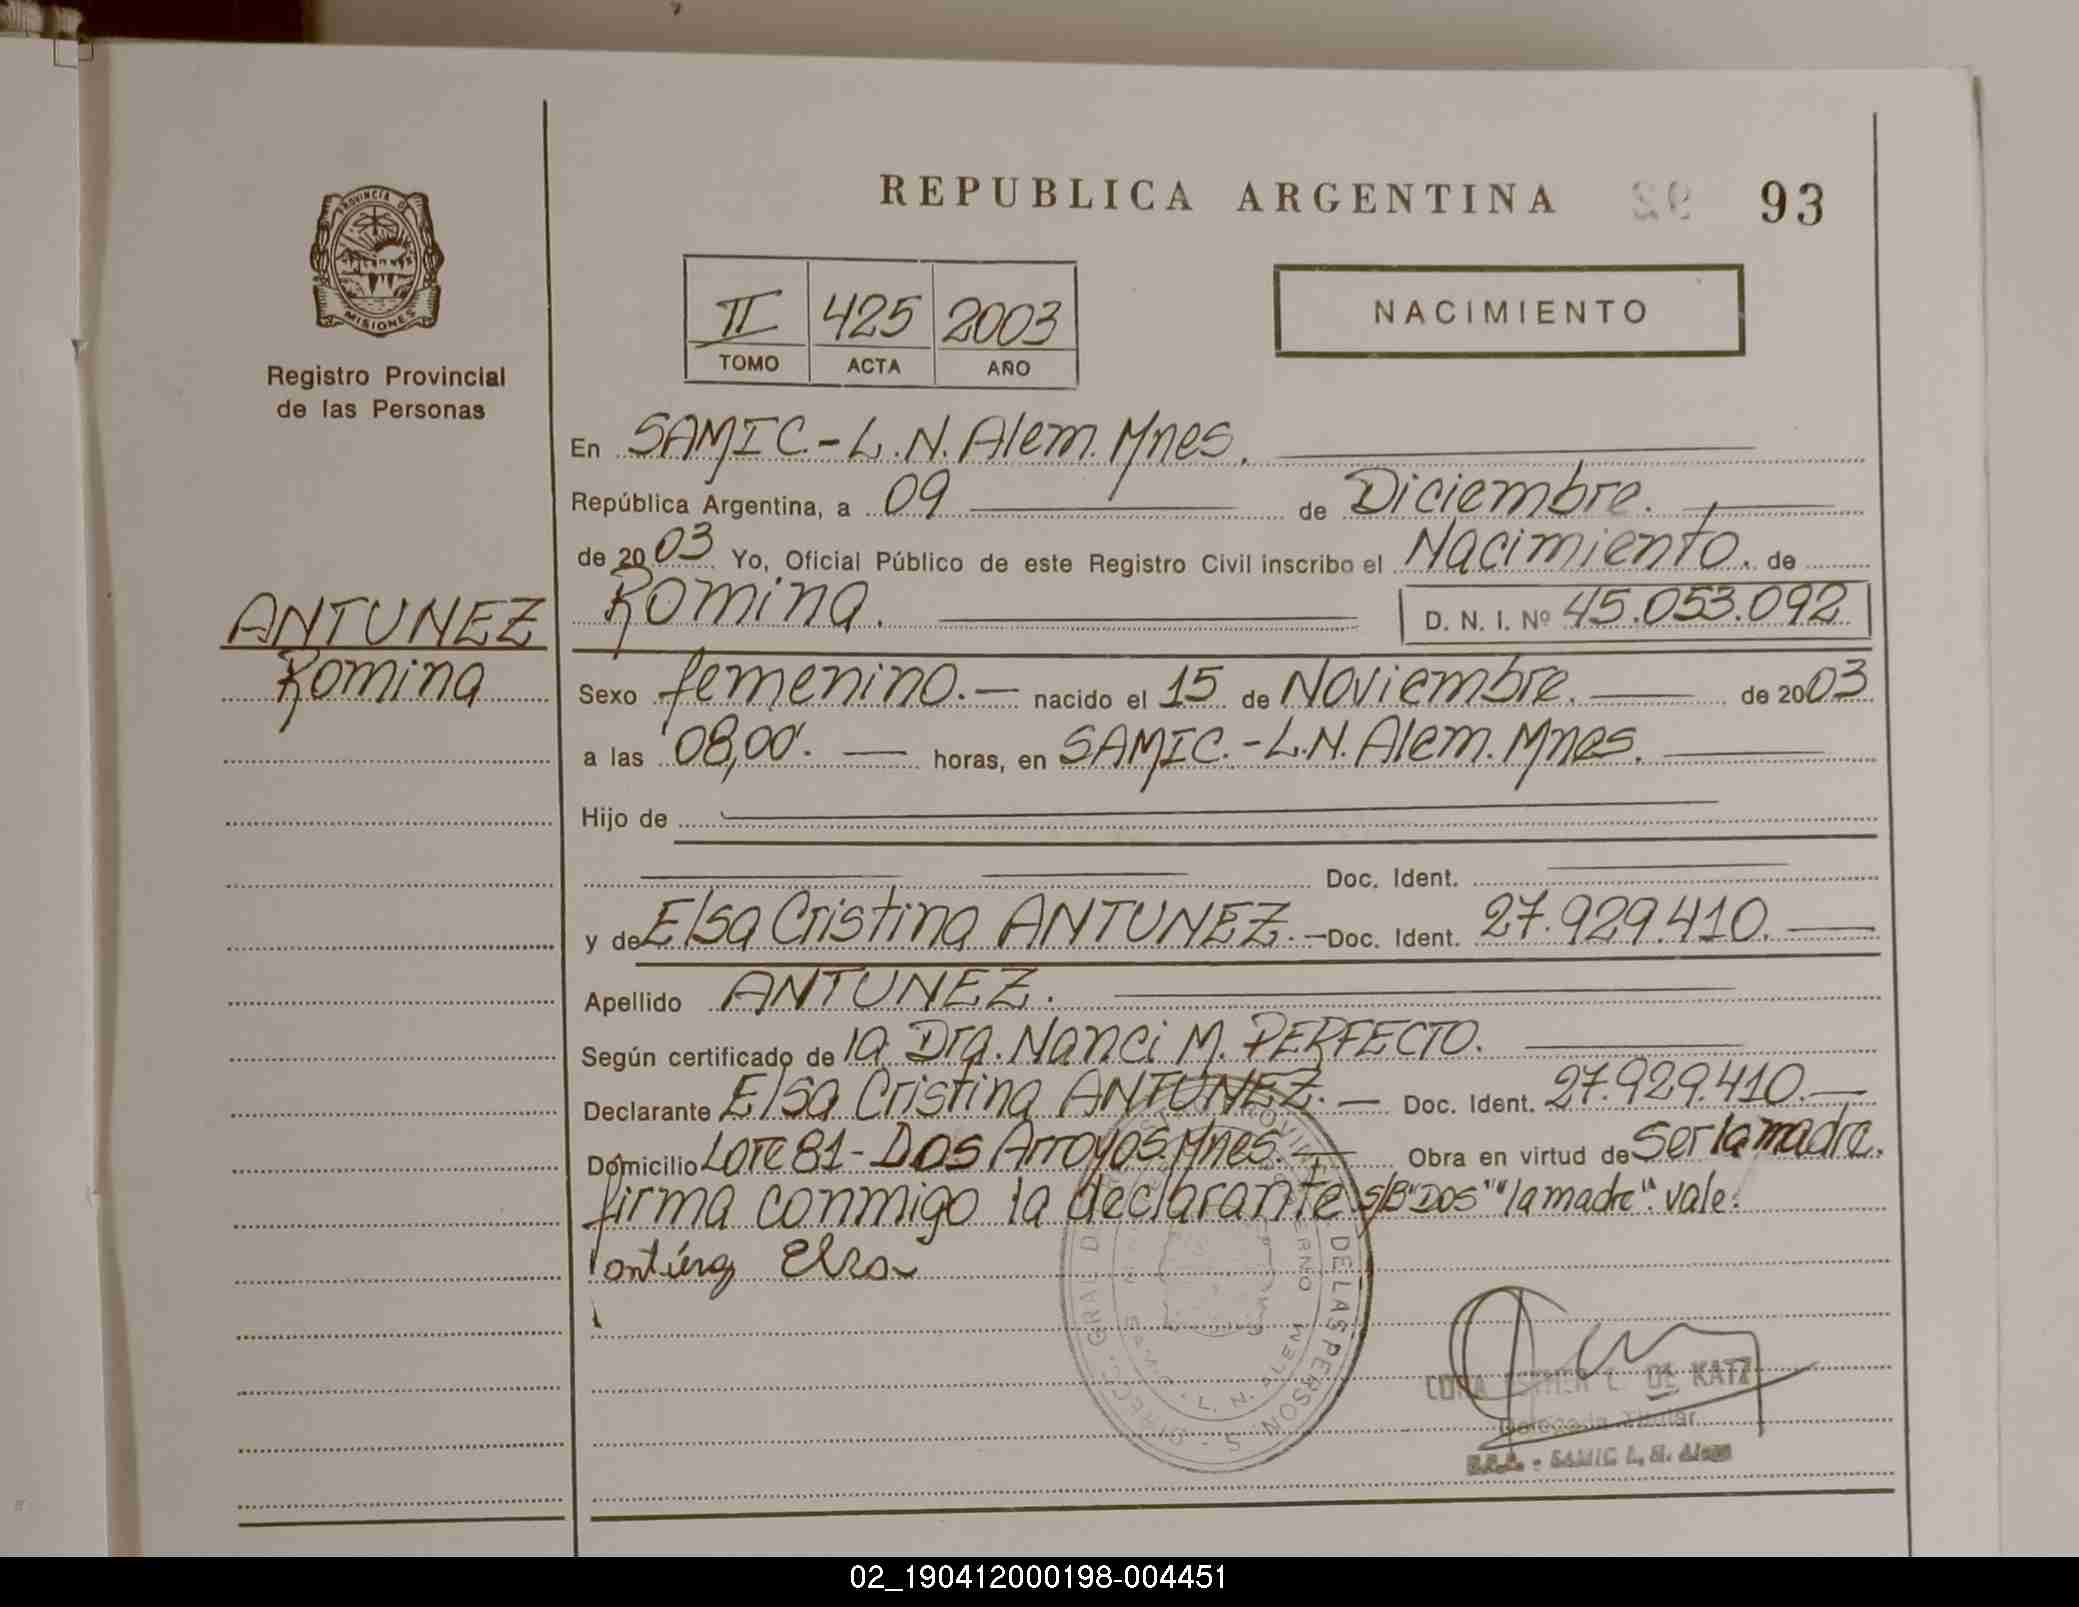 REPUBLICA ARGENTINA 93
PROVINCIA DE
MISIONES
Registro Provincial
de las Personas
II 425 2003
TOMO ACTA AÑO
NACIMIENTO
En SAMIC-L.N.Alem.Mnes.
República Argentina, a 09 de Diciembre.
de 2003 Yo, Oficial Público de este Registro Civil inscribo el Nacimiento. de
Romina. D. N. I. Nº 45.053.092
ANTUNEZ
Romina
Sexo femenino.- nacido el 15 de Noviembre. de 2003
a las 08,00'. horas, en SAMIC.-L.N.Alem.Mnes.
Hijo de
Doc. Ident.
y de Elsa Cristina ANTUNEZ.- Doc. Ident. 27.929.410.
Apellido ANTUNEZ.
Según certificado de la Dra. Nanci M. PERFECTO.
Declarante Elsa Cristina ANTUNEZ.- Doc. Ident. 27.929.410.-
Domicilio Lote 81-Dos Arroyos.Mnes. Obra en virtud de ser la madre.
firma conmigo la declarante s/B"DOS" "la madre". vale.
Elsa
L. N. ALEM
DE LAS PERSONAS
DE KATZ
Delegada Titular
SAMIC L. N. Alem
02_190412000198-004451